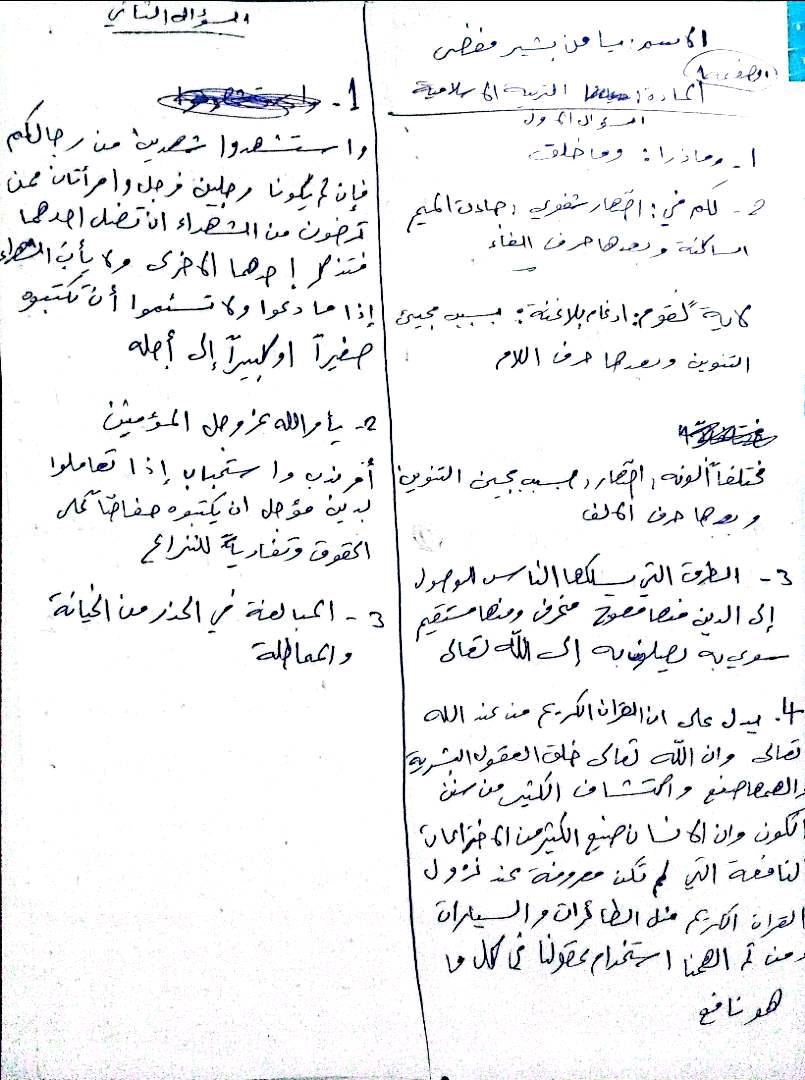 الاسم: ميامن بشير مفضي
الصفحة 1
المادة: التربية الاسلامية
السؤال الاول
1- وماذرا: وما خلق
2- لكم في: اظهار شفوي، جاءت الميم
الساكنة وبعدها حرف الفاء
لاية لقوم: ادغام بلا غنة: بسبب مجيئ
التنوين وبعدها حرف اللام
مختلفاً ألونه: اظهار، بسبب مجيئ التنوين
وبعدها حرف الالف
3- الطرق التي يسلكها الناس للوصول
إلى الدين منها معوج منحرف ومنها مستقيم
سوي به يصلون به إلى الله تعالى
4- يدل على ان القرآن الكريم من عند الله
تعالى وان الله تعالى خلق العقول البشرية
والهمها صنع واكتشاف الكثير من سنن
الكون وان الانسان صنع الكثير من الاختراعات
النافعة التي لم تكن معروفة عند نزول
القران الكريم مثل الطائرات والسيارات
ومن ثم الهمنا استخدام عقولنا في كل ما
هو نافع
السؤال الثاني
1-
واستشهدوا شهدين من رجالكم
فإن لم يكونا رجلين فرجل وامرأتان ممن
ترضون من الشهداء ان تضل احدهما
فتذكر إحدهما الاخرى ولا يأب الشهداء
إذا ما دعوا ولا تسئموا أن تكتبوه
صغيراً او كبيراً إلى أجله
2- يأمر الله عز وجل المؤمنين
أمر ندب واستحباب إذا تعاملوا
بدين مؤجل ان يكتبوه حفاضاً على
الحقوق وتفادياً للنزاع
3- المبالغة في الحذر من الخيانة
والمماطلة